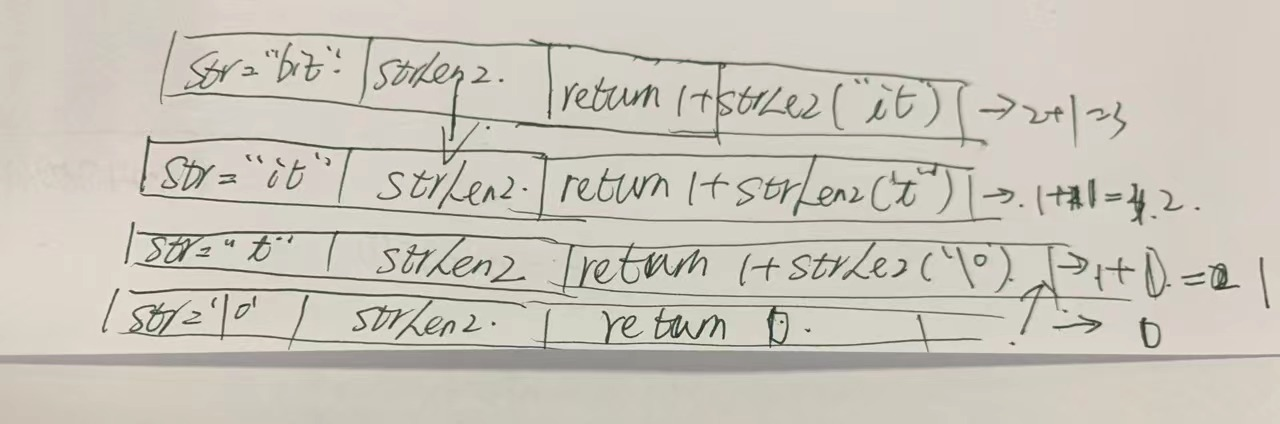 str="bit". strLen2. return 1+strLe2("it) → 2+1=3
str="it" strLen2. return 1+strLen2("t") → 1+1=2.
str="t" strLen2 return 1+strLe2("\0). → 1+0.=1
str='\0' strLen2. return 0. → 0